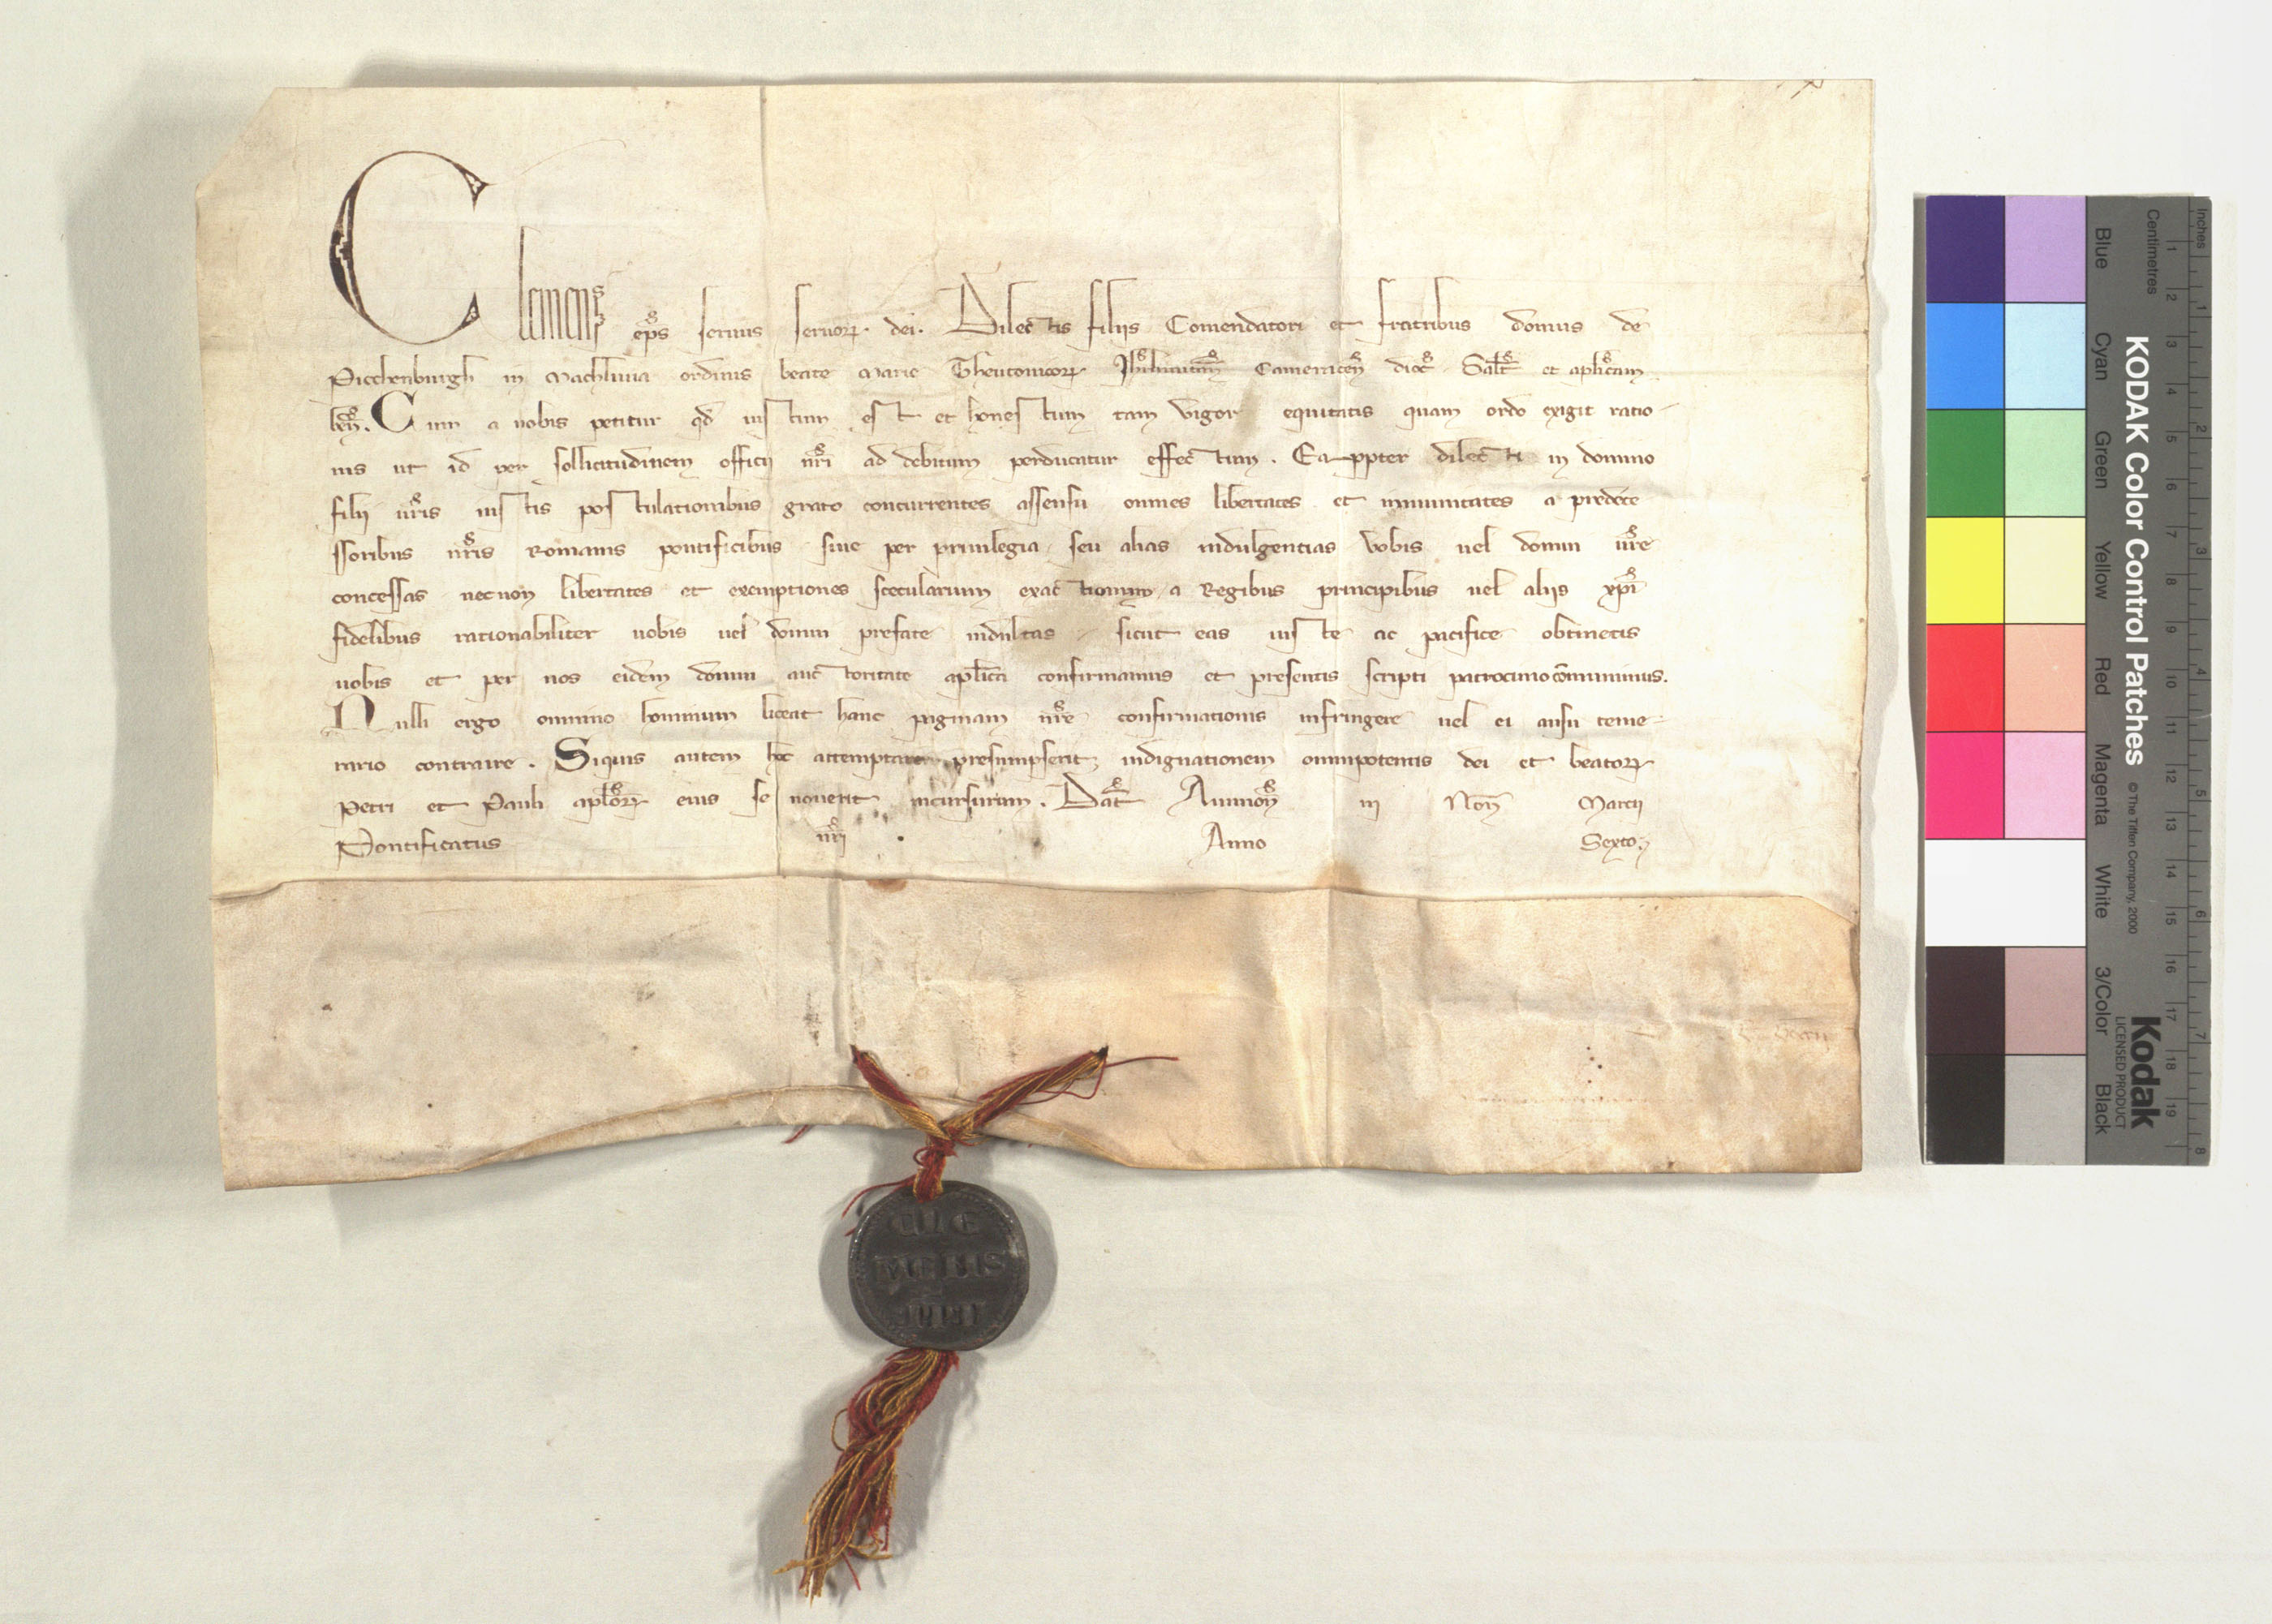 Clemens ep̅s seruus seruorꝝ dei. Dilectis filiis Comendatori et fratribus domus de
Picchenburgh in Machlinia ordinis beate Marie Theutonicorꝝ Ihrlimitan̅ Cameracen̅ dioc̅ Salt̅ et aplicam
ben̅. Cum a nobis petitur qd̅ iustum est et honestum tam vigor equitatis quam ordo exigit ratio-
nis ut id per sollicitudinem officij nr̅i ad debitum perducatur effectum. Eappter dilecti in domino
filij ur̅is iustis postulationibus grato concurrentes assensu omnes libertates et inmunitates a predece
ssoribus nr̅is Romanis pontificibus siue per priuilegia seu alias indulgentias vobis uel domui ur̅e
concessas necnon libertates et exemptiones secularium exactionum a Regibus principibus uel aliis xp̅i
fidelibus rationabiliter uobis uel domui prefate indultas sicut eas iuste ac pacifice obtinetis
uobis et per uos eidem domui auctoritate apl̅ica confirmamus et presentis scripti patrocinio co̅munimus.
Nulli ergo omnino hominum liceat hanc paginam nr̅e confirmationis infringere uel ei ausu teme-
rario contraire. Siquis autem hoc attemptare presumpserit indignationem omnipotentis dei et beatorꝝ
Petri et Pauli apl̅orꝝ eius se nouerit incursurum. Dat̅ Auinion̅ iij Non̅ Marcij
Pontificatus nr̅i Anno Sexto.
CLE
MENS
PP VI
KODAK Color Control Patches © The Tiffen Company, 2000
Kodak
LICENSED PRODUCT
Blue Cyan Green Yellow Red Magenta White 3/Color Black
Centimetres 1 2 3 4 5 6 7 8 9 10 11 12 13 14 15 16 17 18 19
Inches 1 2 3 4 5 6 7 8